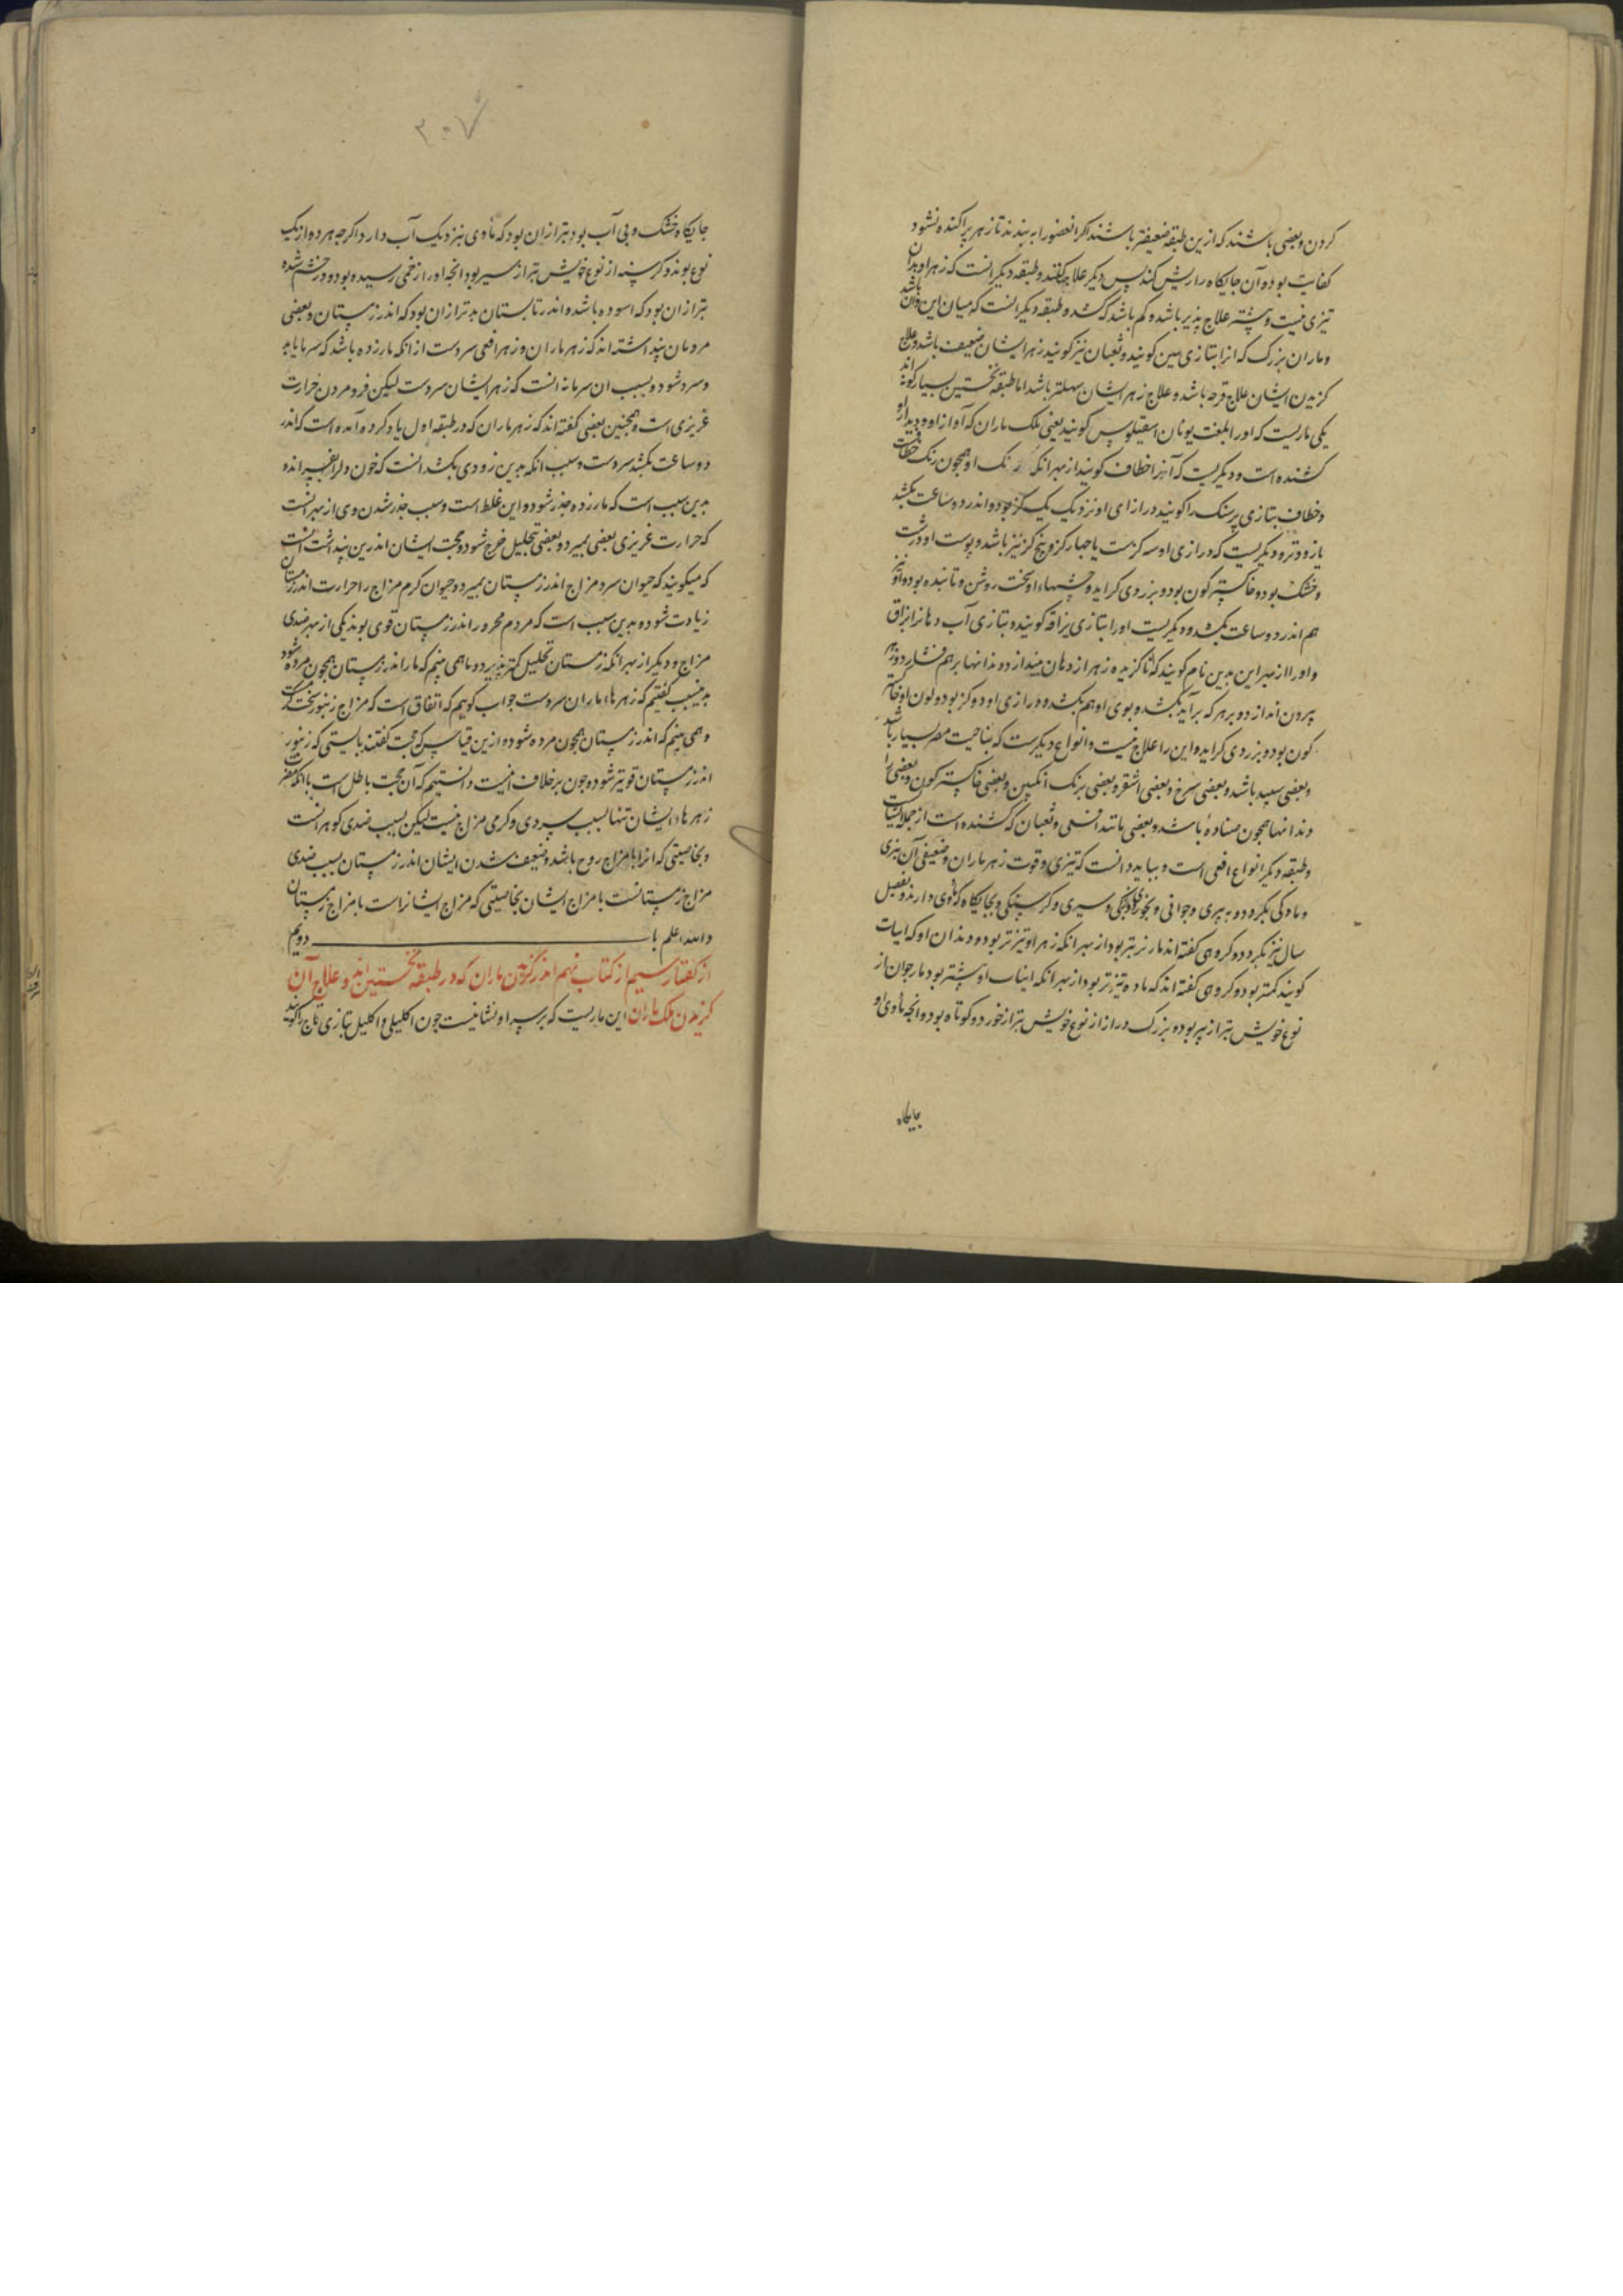 کردن و بعضی باشند که ازین طبقه ضعیفتر باشند اکر انعضورا به بندند تا زهر پراکنده نشود
کفایت بود و آن جایکاه را ریش کنند پس دیکر علاجها کنند و طبقه دیکر انست که زهر او بدان
تیزی نیست و بیشتر علاج پذیر باشد و کم باشد که کشد و طبقه دیکر انست که میان این و آن باشد
و ماران بزرک که انرا بتازی تنین کویند و ثعبان نیز کویند زهر ایشان ضعیف باشد و علاج
کزیدن ایشان علاج قرحه باشد و علاج زهر ایشان سهلتر باشد اما طبقه نخستین بسیار کونه اند
یکی ماریست که اورا بلغت یونان اسقیلیوس کویند یعنی ملک ماران که آواز او و دیدار او
کشنده است و دیکریست که آنرا خطاف کویند از بهر انکه رنک او همچون رنک خطافست
و خطاف بتازی پرستک را کویند درازای او نزدیک یک کز بود و اندر دو ساعت بکشد
یا زودتر و دیکریست که درازی او سه کزست یا چهار کز و پنج کز نیز باشد و پوست او درشت
و خشک بود و خاکستر کون بود و بزردی کراید و چشمهاء او سخت روشن و تابنده بود و او نیز
هم اندر دو ساعت بکشد و دیکریست اورا بتازی بزاقه کویند و بتازی آب دهانرا بزاق
و اورا از بهر این بدین نام کویند که ناکزیده زهر از دهان بیندازد و دندانها بر هم فشارد و زهر
بیرون اندازد و بر هر که برآید بکشد و بوی او هم بکشد و درازی او دو کز بود و لون او خاکستر
کون بود و بزردی کراید و این را علاج نیست و انواع دیکرست که بناحیت مصر بسیار باشد
و بعضی سپید باشد و بعضی سرخ و بعضی اشقر و بعضی برنک انکبین و بعضی خاکستر کون و بعضی را
دندانها همچون سناره باشد و بعضی مانند افعی و ثعبان که کشنده است از جمله ایشانست
و طبقه دیکر انواع افعی است و بباید دانست که تیزی و قوت زهر ماران و ضعیفی آن بنری
و مادکی بکردد و به پیری و جوانی و بخوردی و بزرکی و سیری و کرسنکی و بجایکاه که ماوی دارند و بفصل
سال نیز بکردد و کروهی کفته اند مار نر بتر بود از بهر انکه زهر او تیزتر بود و دندان او که انیاب
کویند کمتر بود و کروهی کفته اند که ماده تیزتر بود از بهر انکه انیاب او بیشتر بود مار جوان از
نوع خویش بتر از پیر بود و بزرک دراز از نوع خویش بتر از خورد و کوتاه بود و انچه ماوی او
جایکاه
۳۰۷
جایکاه خشک و بی آب بود بتر ازان بود که ماوی نیزدیک آب دارد اکرچه هر دو از یک
نوع بوند و کرسنه از نوع خویش بتر از سیر بود انچه اورا زخمی رسیده بود و در خشم شده
بتر ازان بود که اسوده باشد و اندر تابستان بدتر ازان بود که اندر زمستان و بعضی
مردمان پنداشته اند که زهر ماران و زهر افعی سردست از انکه مارزده باشد که سرما یابد
و سرد شود و بسبب ان سرما نه انست که زهر ایشان سردست لیکن فرو مردن حرارت
غریزی است و همچنین بعضی کفته اند که زهر ماران که در طبقه اول یاد کرده آمده است که اندر
دو ساعت بکشد سردست و سبب انکه بدین زودی بکشد انست که خون دل را بفسراند و
بدین سبب است که مارزده خدر شود و این غلط است و سبب خدر شدن وی از بهر انست
که حرارت غریزی بعضی بمیرد و بعضی بتحلیل خرج شود و حجت ایشان اندرین پنداشت انست
که میکویند که حیوان سرد مزاج اندر زمستان بمیرد و حیوان کرم مزاج را حرارت اندر زمستان
زیادت شود و بدین سبب است که مردم محرور اندر زمستان قوی بوند یکی از بهر ضدی
مزاج و دیکر از بهر انکه زمستان تحلیل کمتر پذیرد و ما همی بینم که مار اندر زمستان همچون مرده شود
بدین سبب کفتیم که زهرهاء ماران سردست جواب کویم که اتفاق است که مزاج زنبور سخت کرمست
و همی بینم که اندر زمستان همچون مرده شود و ازین قیاس که حجت کفتند بایستی که زنبور
اندر زمستان قویتر شود و چون بر خلاف اینست دانستیم که آن حجت باطل است با انکه مضرت
زهرهاء ایشان تنها بسبب سردی و کرمی مزاج نیست لیکن بسبب ضدی کوهر انست
و بخاصیتی که انرا با مزاج روح باشد و ضعیف شدن ایشان اندر زمستان بسبب ضدی
مزاج زمستانست با مزاج ایشان بخاصیتی که مزاج ایشانراست با مزاج زمستان
والله اعلم باب دویم
از کفتار سیم از کتاب نهم اندر کزیدن ماران که در طبقه نخستین اند و علاج آن
کزیدن ملک ماران این ماریست که بر سر او نشانیست چون اکلیلی و اکلیل بتازی تاج را کویند